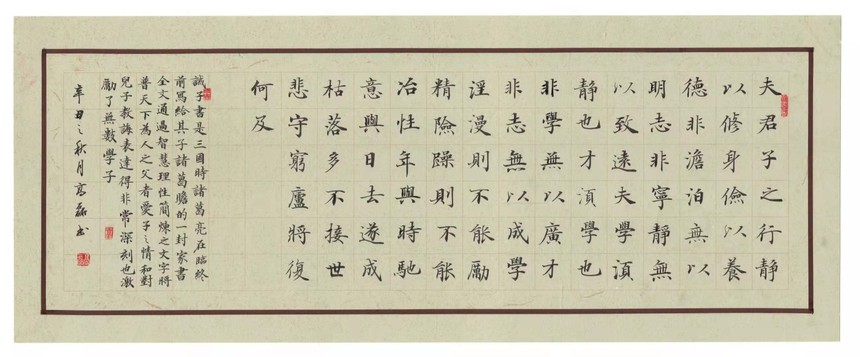 夫君子之行靜
以修身儉以養
德非澹泊無以
明志非寧靜無
以致遠夫學須
靜也才須學也
非學無以廣才
非志無以成學
淫漫則不能勵
精險躁則不能
冶性年與時馳
意與日去遂成
枯落多不接世
悲守窮廬將復
何及
誡子書是三國時諸葛亮在臨終
前寫給其子諸葛瞻的一封家書
全文通過智慧理性簡煉之文字將
普天下為人之父者愛子之情和對
兒子教誨表達得非常深刻也激
勵了無數學子
辛丑之秋月 磊書